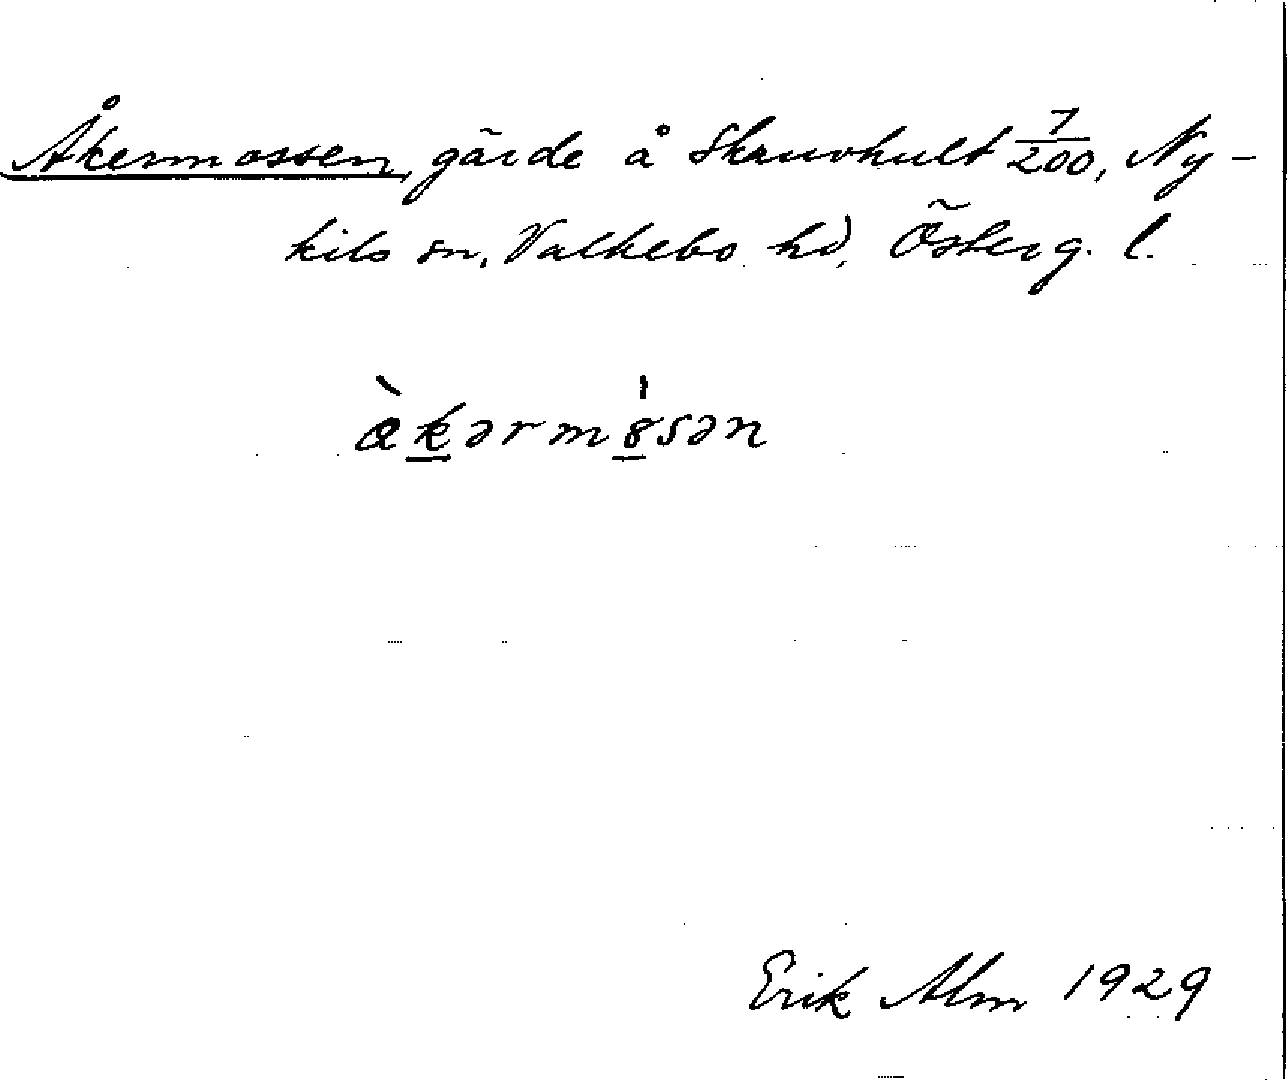 Åkermossen, gärde å Skruvhult 7/200, Ny-
kils sn, Valkebo hd, Österg. l.
æ̀kərm8̍sən
Erik Alm 1929